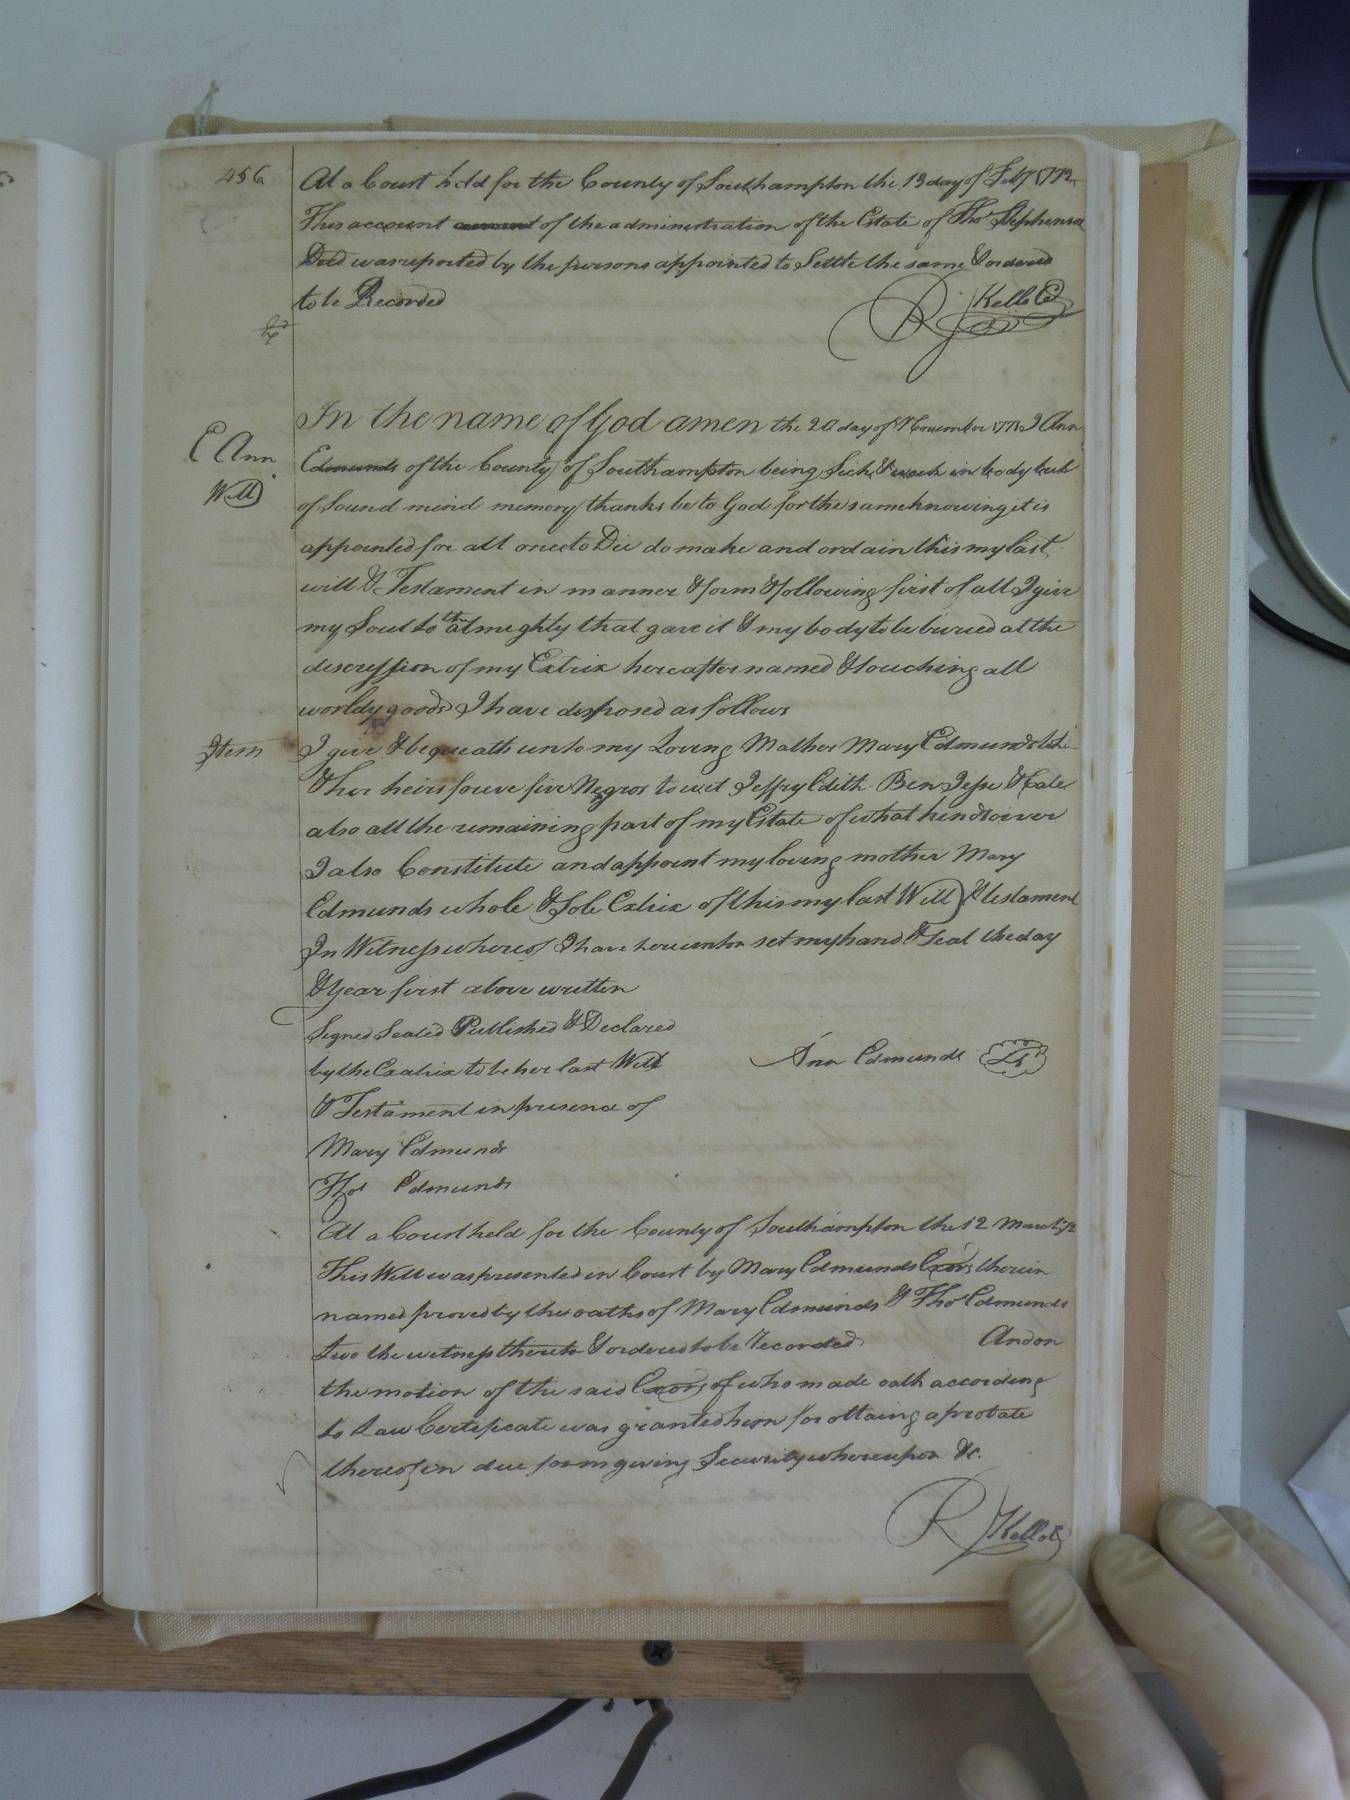 456
At a Court held for the County of Southampton the 13 day of Feby 1772
This account amount of the administration of the Estate of Thos Stephenson
Decd was reported by the persons appointed to Settle the same & ordered
to be Recorded
R Kello CC
In the name of God amen the 20 day of November 1771 I Ann
E Ann
Will
Edmunds of the County of Southampton being Sick & weak in body but
of Sound mind memory thanks be to God for the same knowing it is
appointed for all once to Die do make and ordain this my last
will & Testament in manner & form & following first of all I give
my Soul to the almeghty that gave it & my body to be buried at the
descression of my Extrix hereafter named & touching all
worldy goods I have disposed as follows
Item
I give & bequeath unto my Loving Mother Mary Edmunds
& her heirs forever five Negros to wit Jeffry Edith Ben Jesse & Cate
also all the remaining part of my Estate of what kind soiver
I also Constitute and appoint my loving mother Mary
Edmunds whole & Sole Extrix of this my last Will & testament
In Witness whereof I have hereunto set my hand & Seal the day
& Year first above written
Signed Sealed Published & Declared
by the Exatrix to be her last Will
Ann Edmunds LS
& Testament in presence of
Mary Edmunds
Thos Edmunds
At a Court held for the County of Southampton the 12 March 1772
This Will was presented in Court by Mary Edmunds Exors therein
named proved by the oaths of Mary Edmunds & Thos Edmunds
two the witness thereto & ordered to be recorded And on
the motion of the said Exors of who made oath according
to Law Certificate was granted him for ottaing a probate
thereof in due form giving Security whereupon &c.
R Kello CC